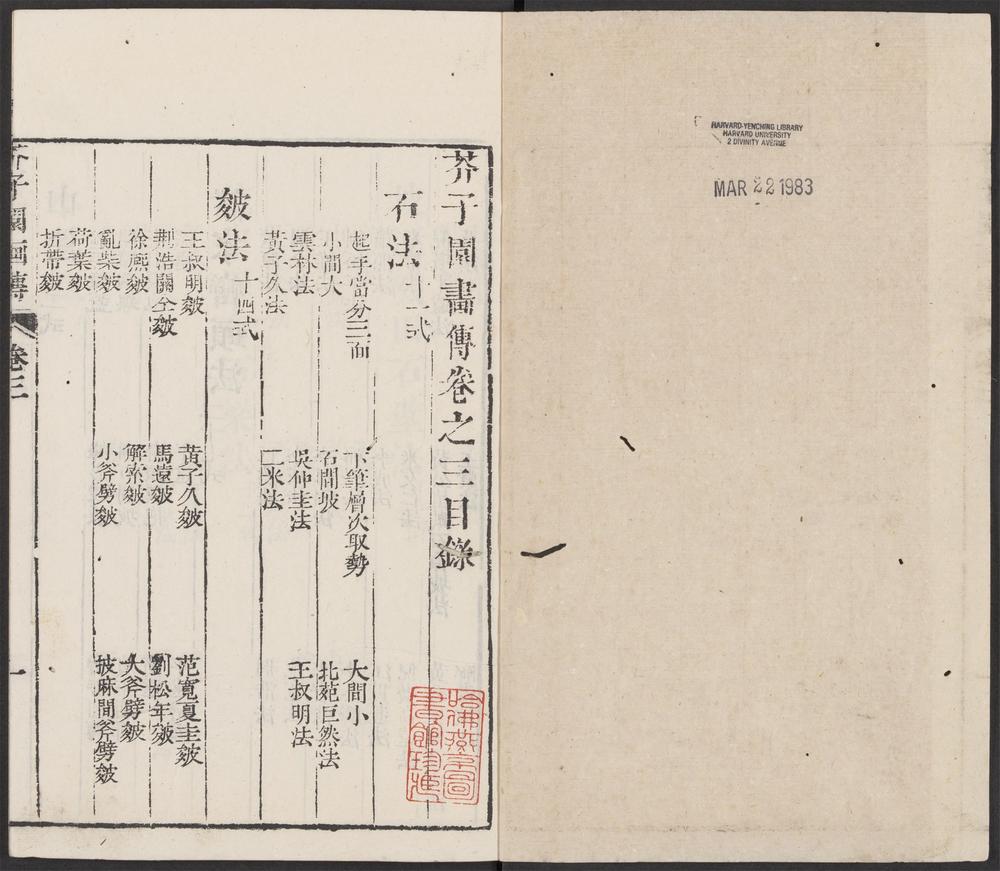 HARVARD-YENCHING LIBRARY
HARVARD UNIVERSITY
2 DIVINITY AVENUE
MAR 22 1983
芥子園畫傳卷之三目錄
石法十一式
起手當分三面 下筆層次取勢 大間小
小間大 石間坡 北苑巨然法
雲林法 吳仲圭法 王叔明法
黃子久法 二米法
皴法十四式
王叔明皴 黃子久皴 范寬夏圭皴
荆浩關仝皴 馬遠皴 劉松年皴
徐熙皴 解索皴 大斧劈皴
亂柴皴 小斧劈皴 披麻間斧劈皴
荷葉皴
折帶皴
芥子園畫傳 卷三 一
哈佛燕京圖
書館珍藏